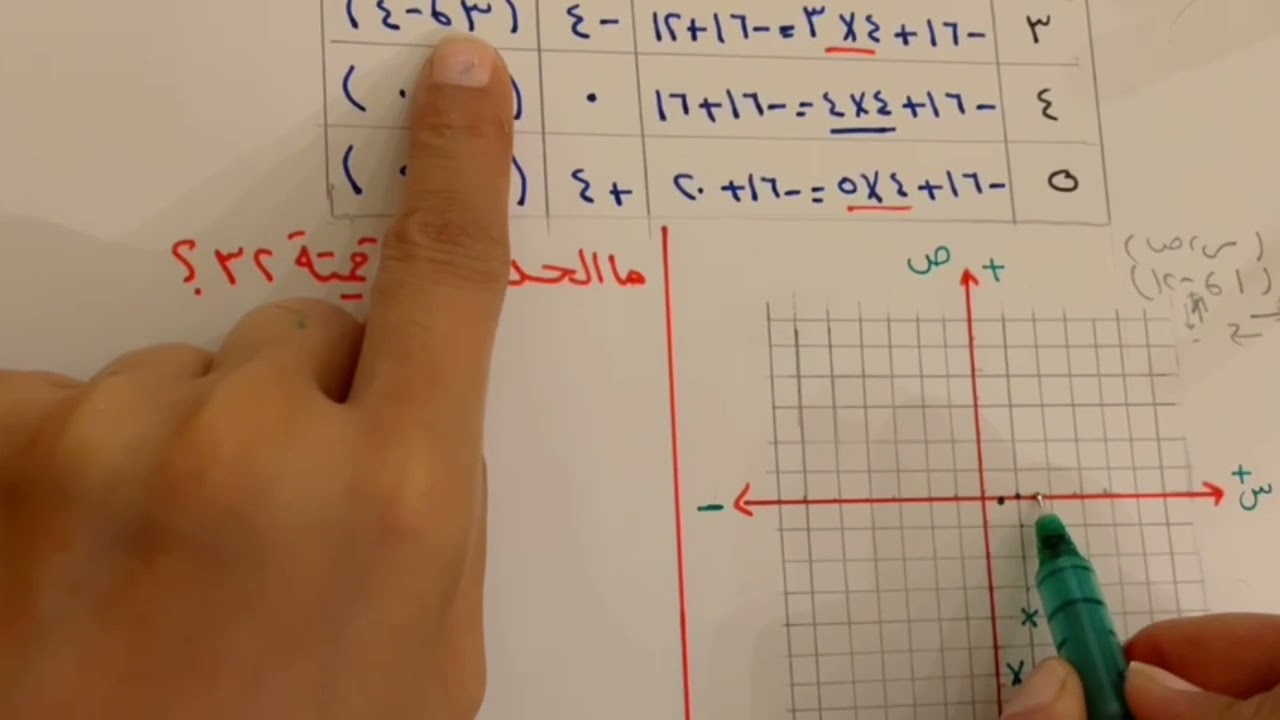 ٣ -١٦+٤×٣=-١٦+١٢ -٤ (٣، -٤)
٤ -١٦+٤×٤=-١٦+١٦ ٠ ( ٠ )
٥ -١٦+٤×٥=-١٦+٢٠ +٤ ( )
ما الحد قيمتة ٣٢؟
+ ص
(س، ص)
(١، -١٢)
+ س
-